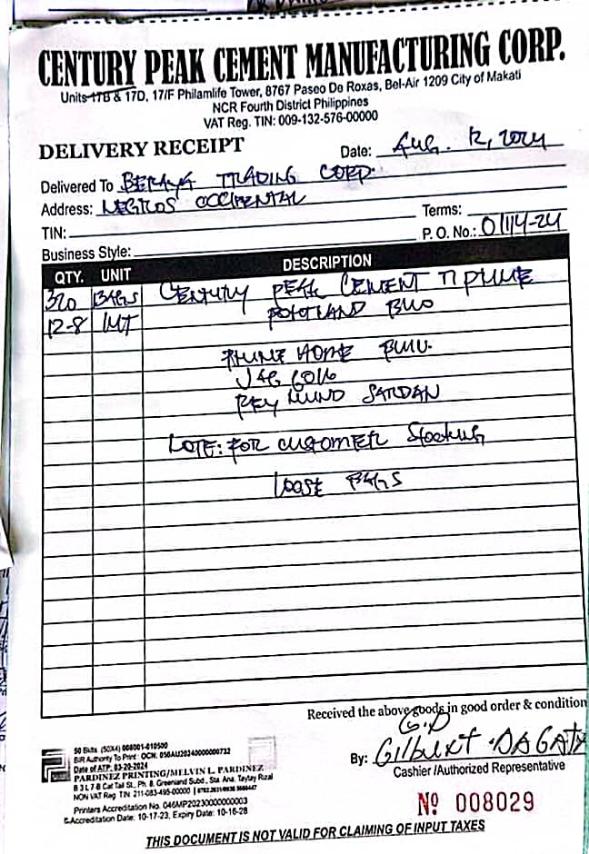 CENTURY PEAK CEMENT MANUFACTURING CORP.
Units 17B & 17D, 17/F Philamlife Tower, 8767 Paseo De Roxas, Bel-Air 1209 City of Makati
NCR Fourth District Philippines
VAT Reg. TIN: 009-132-576-00000
DELIVERY RECEIPT
Date: Aug. 12, 2024
Delivered To TRADING CORP.
Address: NEGROS OCCIDENTAL
TIN: Terms:
Business Style: P. O. No.: 01114-24
QTY. UNIT DESCRIPTION
320 BAGS CENTURY PEAK CEMENT PRIME
12-8 MT PORTLAND
PRIME HOME
REY MUND SARDAN
NOTE: FOR CUSTOMER Stocking
LOOSE BAGS
Received the above goods in good order & condition
By: Gilbert DAGATA
Cashier /Authorized Representative
50 Bklts. (50X4) 008001-010500
BIR Authority To Print : OCN: 050AU20240000000732
Date of ATP: 03-20-2024
PARDINEZ PRINTING/MELVIN L. PARDINEZ
B 3 L 7-B Cat Tail St., Ph. 8, Greenland Subd., Sta. Ana, Taytay Rizal
NON VAT Reg. TIN: 211-083-495-00000
Printers Accreditation No. 046MP20230000000003
Accreditation Date: 10-17-23, Expiry Date: 10-16-28
Nº 008029
THIS DOCUMENT IS NOT VALID FOR CLAIMING OF INPUT TAXES